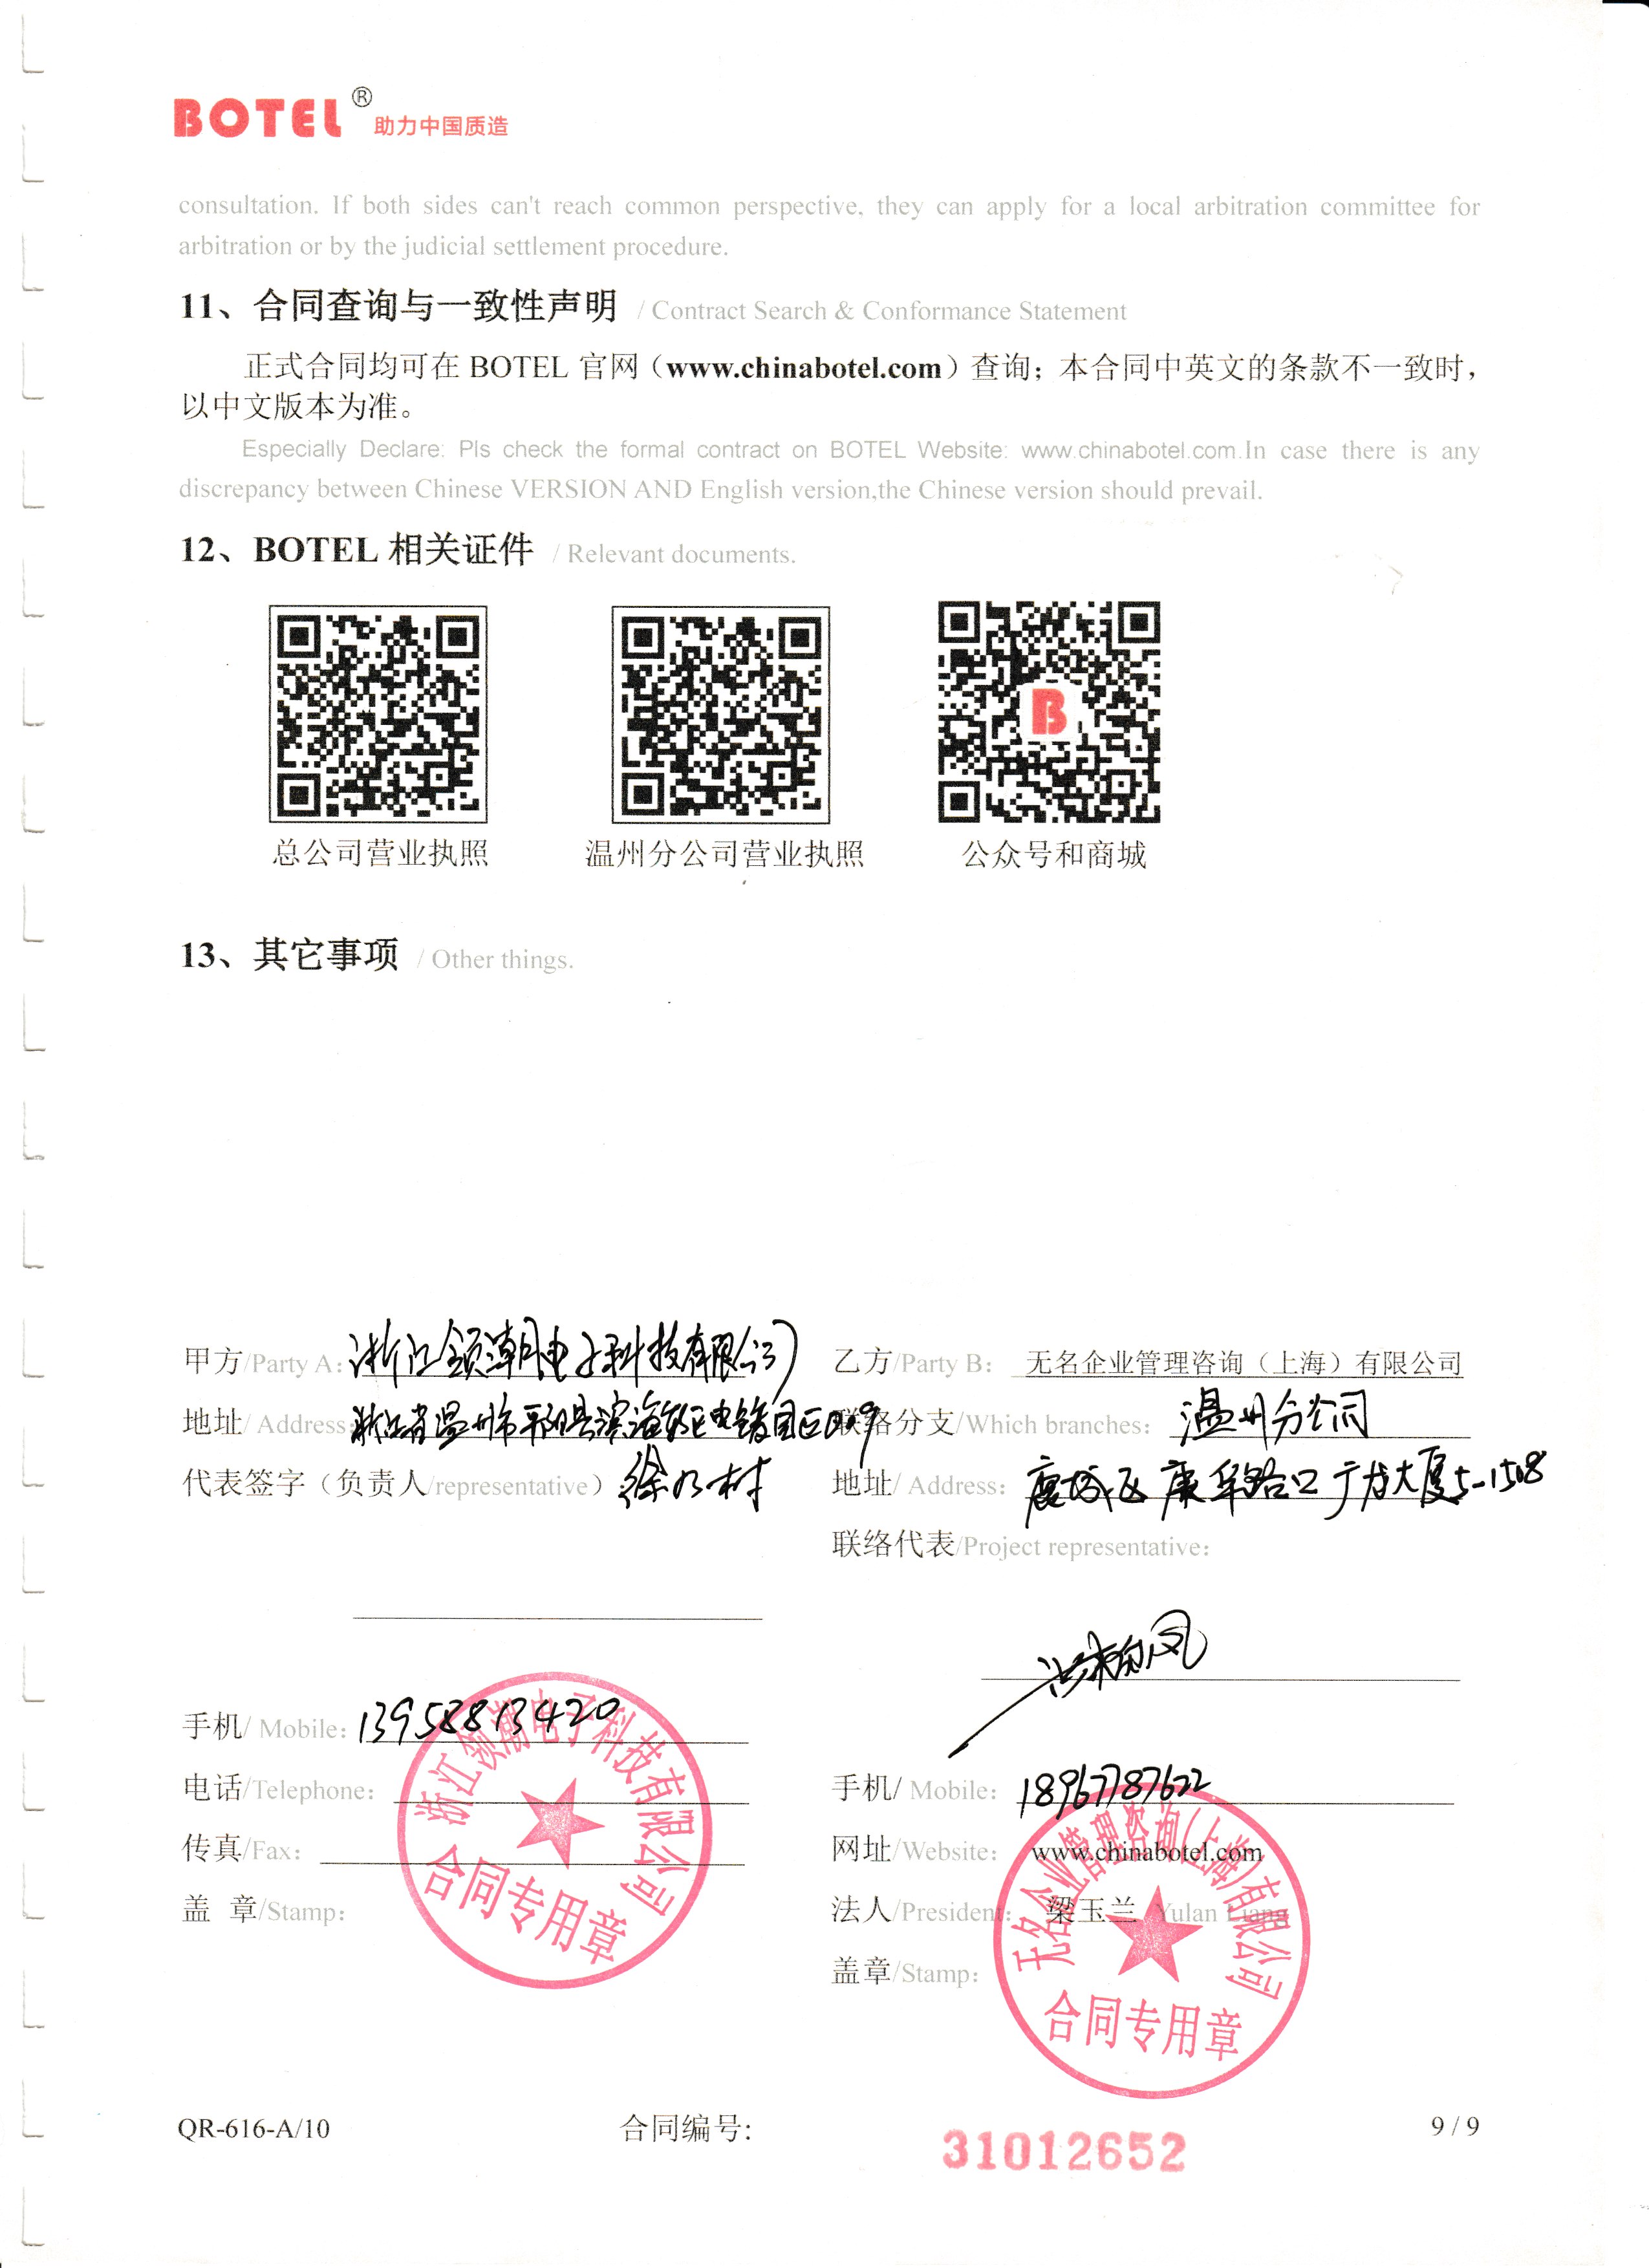 BOTEL® 助力中国质造
consultation. If both sides can't reach common perspective, they can apply for a local arbitration committee for
arbitration or by the judicial settlement procedure.
11、合同查询与一致性声明 / Contract Search & Conformance Statement
正式合同均可在 BOTEL 官网（www.chinabotel.com）查询；本合同中英文的条款不一致时，
以中文版本为准。
Especially Declare: Pls check the formal contract on BOTEL Website: www.chinabotel.com.In case there is any
discrepancy between Chinese VERSION AND English version,the Chinese version should prevail.
12、BOTEL 相关证件 / Relevant documents.
B
总公司营业执照 温州分公司营业执照 公众号和商城
13、其它事项 / Other things.
甲方/Party A: 浙江领潮电子科技有限公司 乙方/Party B: 无名企业管理咨询（上海）有限公司
地址/ Address: 浙江省温州市平阳县滨海新区电镀园区 联络分支/Which branches: 温州分公司
代表签字（负责人/representative） 徐 村 地址/ Address: 鹿城区 康华路口广龙大厦5-1508
联络代表/Project representative:
手机/ Mobile: 13958813420
电话/Telephone: 手机/ Mobile: 18967787622
传真/Fax: 网址/Website: www.chinabotel.com
盖 章/Stamp: 法人/President: 梁玉兰 Yulan Liang
盖章/Stamp:
浙江领潮电子科技有限公司
合同专用章
无名企业管理咨询(上海)有限公司
合同专用章
QR-616-A/10 合同编号: 31012652 9 / 9